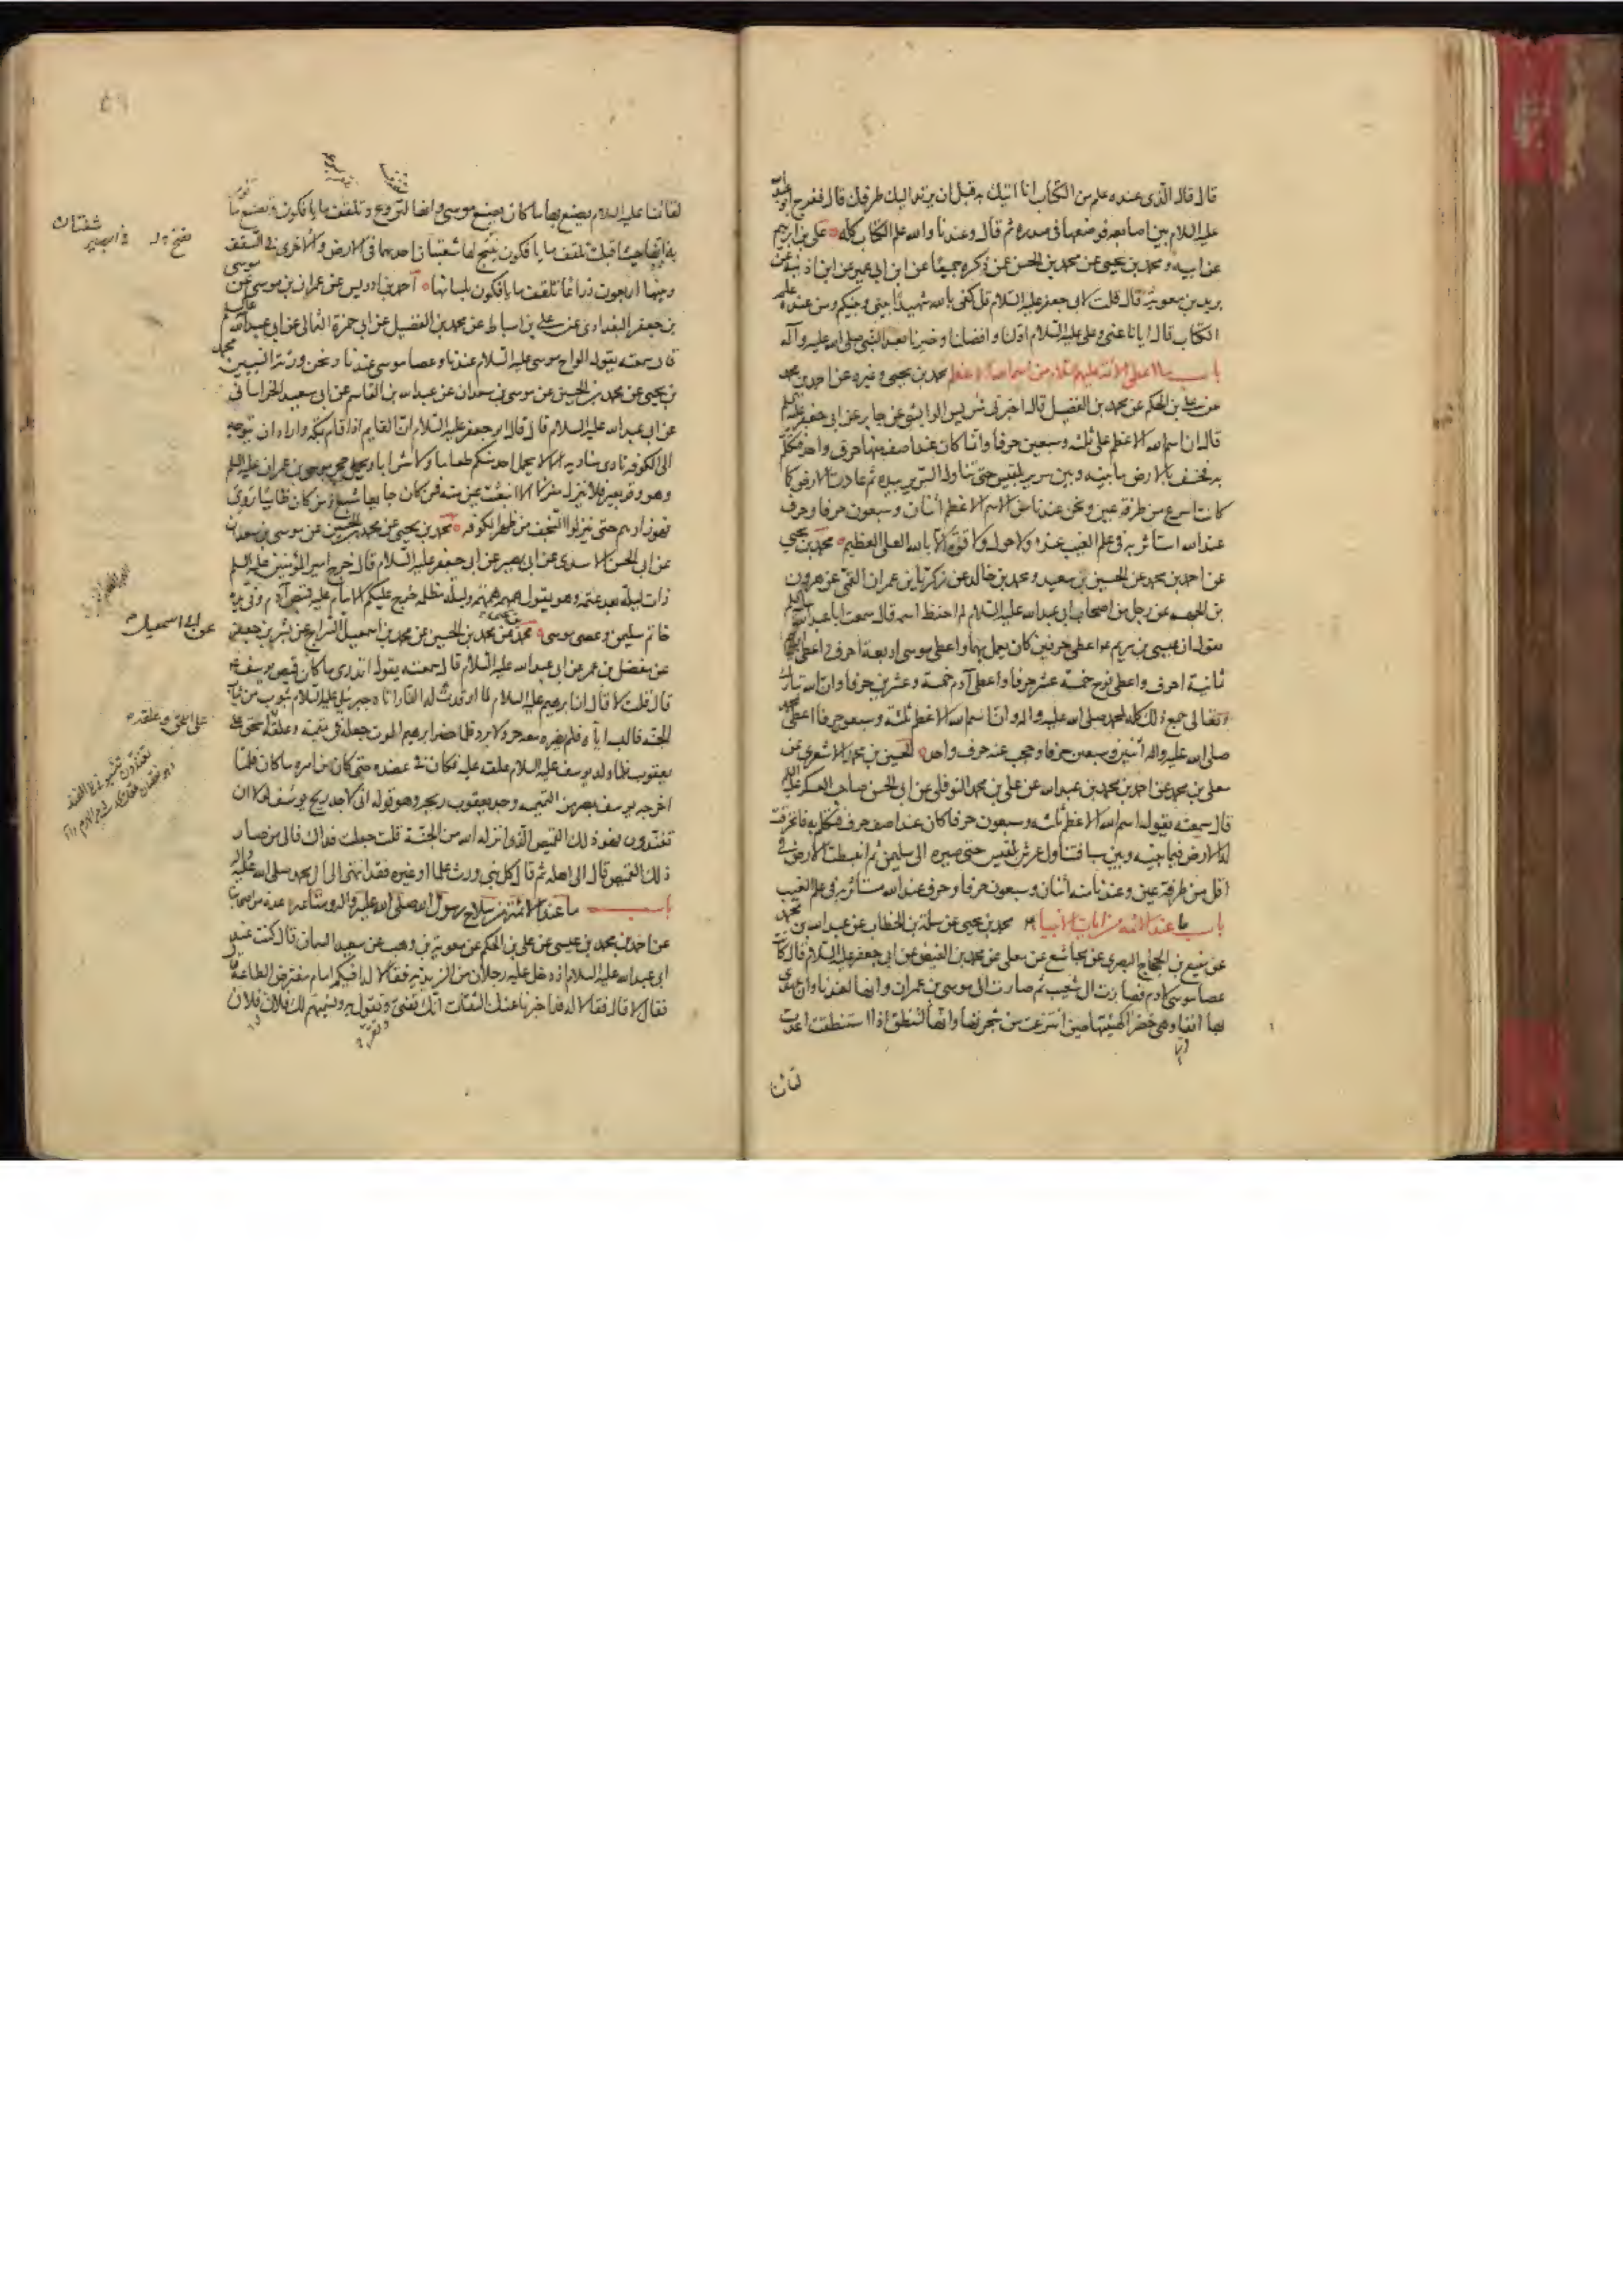 قال قال الذى عنده علم من الكتاب انا اتيك به قبل ان يرتد اليك طرفك قال ففرج ابو عبد الله
عليه السلام بين اصابعه فوضعها فى صدره ثم قال وعندنا والله علم الكتاب كله علي بن ابرهيم
عن ابيه و محمد بن يحيى عن محمد بن الحسن عن ذكره جميعا عن ابن ابى عمير عن ابن اذينه عن
بريد بن معوية قال قلت لابى جعفر عليه السلام قل كفى بالله شهيدا بينى وبينكم ومن عنده علم
الكتاب قال ايانا عنى وعلى عليه السلام اولنا وافضلنا وخيرنا بعد النبى صلى الله عليه وآله
باب ما اعطى الائمة عليهم السلام من اسم الله الاعظم محمد بن يحيى وغيره عن احمد بن محمد
عن على بن الحكم عن محمد بن الفضيل قال اخبرنى شريس الوابشى عن جابر عن ابى جعفر عليه السلم
قال ان اسم الله الاعظم على ثلثه وسبعين حرفا وانما كان عند اصف منها حرف واحد فتكلم
به فخسف بالارض ما بينه وبين سرير بلقيس حتى تناول السرير بيده ثم عادت الارض كما
كانت اسرع من طرفة عين ونحن عندنا من الاسم الاعظم اثنان وسبعون حرفا وحرف
عند الله استاثر به فى علم الغيب عنده ولا حول ولا قوة الا بالله العلى العظيم محمد بن يحيى
عن احمد بن محمد عن الحسين بن سعيد ومحمد بن خالد عن زكريا بن عمران القمى عن هرون
بن الجهم عن رجل من اصحاب ابى عبدالله عليه السلام لم احفظ اسمه قال سمعت ابا عبدالله عليه السلم
يقول ان عيسى بن مريم اعطى حرفين كان يعمل بهما واعطى موسى اربعة احرف واعطى ابرهيم
ثمانية احرف واعطى نوح خمسة عشر حرفا واعطى آدم خمسة وعشرين حرفا وان الله تبارك
وتعالى جمع ذلك كله لمحمد صلى الله عليه واله وان اسم الله الاعظم ثلثة وسبعون حرفا اعطى محمد
صلى الله عليه واله اثنين وسبعين حرفا وحجب عنه حرف واحد الحسين بن محمد الاشعرى عن
معلى بن محمد عن احمد بن محمد بن عبدالله عن على بن محمد النوفلى عن ابى الحسن صاحب العسكر عليه السلم
قال سمعته يقول اسم الله الاعظم ثلثه وسبعون حرفا كان عند اصف حرف فتكلم به فانخرقت
له الارض فيما بينه وبين سبا فتناول عرش بلقيس حتى صيره الى سليمن ثم انبسطت الارض فى
اقل من طرفة عين وعندنا منه اثنان وسبعون حرفا وحرف عند الله مستاثر به فى علم الغيب
باب ما عند الائمه من ايات الانبياء محمد بن يحيى عن سلمة بن الخطاب عن عبدالله بن محمد
عن منيع بن الحجاج البصرى عن مجاشع عن معلى عن محمد بن الفيض عن ابى جعفر عليه السلام قال كانت
عصا موسى لادم فصارت الى شعيب ثم صارت الى موسى بن عمران وانها لعندنا وان عهدى
بها آنفا وهى خضرا كهيئتها حين انتزعت من شجرتها وانها لتنطق اذا استنطقت اعدت
لقائمنا عليه السلام يصنع بها ما كان يصنع موسى وانها لتروع وتلقف ما يافكون وتصنع ما
به انها حيث اقبلت تلقف ما يافكون يفتح لها شعبتان احديهما فى الارض والاخرى فى السقف
وبينهما اربعون ذراعا تلقف ما يافكون بلسانها احمد بن ادريس عن عمران بن موسى عن موسى
بن جعفر البغدادى عن على بن اسباط عن محمد بن الفضيل عن ابى حمزة الثمالى عن ابى عبدالله عليه السلم
قال سمعته يقول الواح موسى عليه السلام عندنا وعصا موسى عندنا ونحن ورثة النبيين محمد
بن يحيى عن محمد بن الحسين عن موسى بن سعدان عن عبدالله بن القاسم عن ابى سعيد الخراسانى
عن ابى عبدالله عليه السلام قال قال ابو جعفر عليه السلام ان القايم اذا قام بمكه واراد ان يتوجه
الى الكوفه نادى مناديه الا لا يحمل احد منكم طعاما ولا شرابا ويحمل حجر موسى بن عمران عليه السلم
وهو وقر بعير فلا ينزل منزلا الا انبعث عين منه فمن كان جايعا شبع ومن كان ظاميا روى
فهو زادهم حتى ينزلوا النجف من ظهر الكوفه محمد بن يحيى عن محمد بن الحسين عن موسى بن سعدان
عن ابى الحسن الاسدى عن ابى بصير عن ابى جعفر عليه السلام قال خرج امير المؤمنين عليه السلم
ذات ليلة بعد عتمه وهو يقول همهمه همهمه وليله مظلمه خرج عليكم الامام عليه قميص آدم وفى يده
خاتم سليمن وعصى موسى محمد عن محمد بن الحسين عن محمد بن اسمعيل السراج عن بشر بن جعفر
عن مفضل بن عمر عن ابى عبدالله عليه السلام قال سمعته يقول اتدرى ما كان قميص يوسف
قال قلت لا قال ان ابرهيم عليه السلام لما اوقدت له النار اتاه جبرئيل عليه السلام بثوب من ثياب
الجنه فالبسه اياه فلم يضره معه حر ولا برد فلما حضر ابرهيم الموت جعله فى تميمه وعلقه اسحق على
يعقوب فلما ولد يوسف عليه السلام علقه عليه فكان فى عضده حتى كان من امره ما كان فلما
اخرجه يوسف بمصر من التميمه وجد يعقوب ريحه وهو قوله انى لاجد ريح يوسف لولا ان
تفندون فهو ذلك القميص الذى انزله الله من الجنة قلت جعلت فداك فالى من صار
ذلك القميص قال الى اهله ثم قال كل نبى ورث علما او غيره فقد انتهى الى آل محمد صلى الله عليه واله
باب ما عند الائمة من سلاح رسول الله صلى الله عليه واله ومتاعه عدة من اصحابنا
عن احمد بن محمد بن عيسى عن على بن الحكم عن معوية بن وهب عن سعيد السمان قال كنت عند
ابى عبدالله عليه السلام اذ دخل عليه رجلان من الزيدية فقالا له افيكم امام مفترض الطاعة
فقال لا قال فقالا له قد اخبرنا عنك الثقات انك تفتى وتقول به ونسميهم لك فلان وفلان
شفتان
عن ابى اسمعيل
على اسحق وعلقه